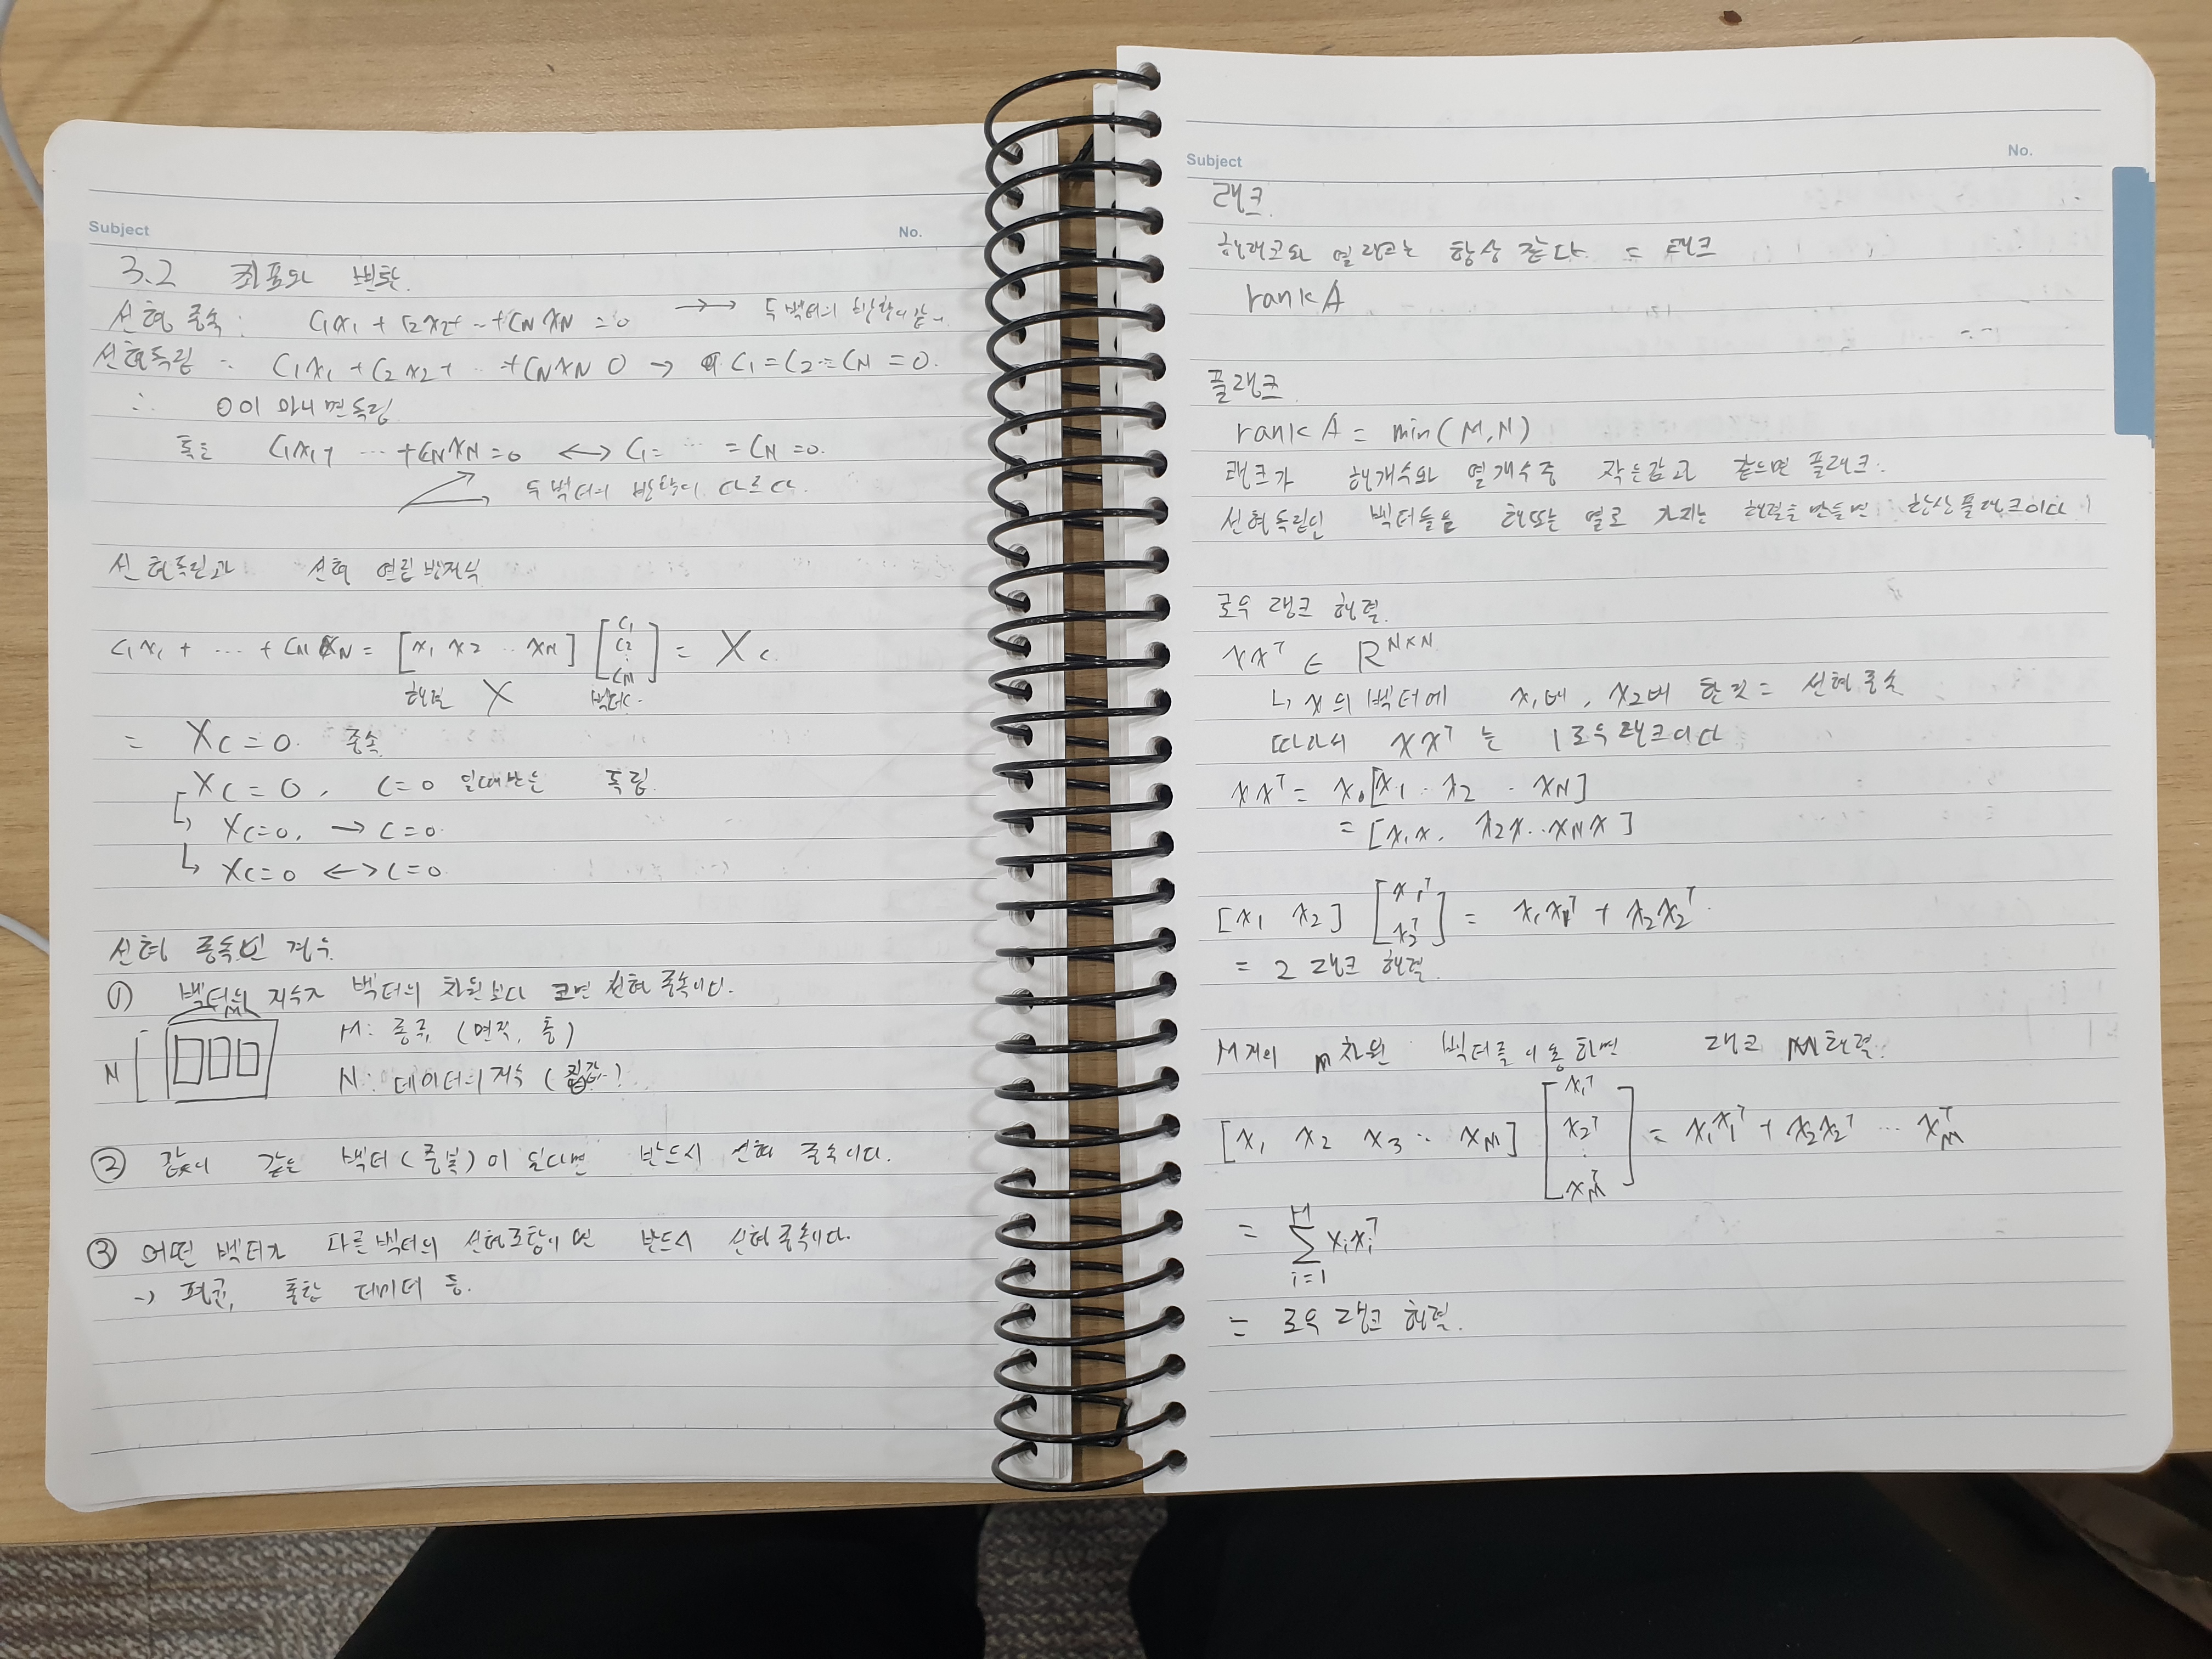 Subject No.
3.2 좌표와 변환.
선형종속: C1x1 + C2x2+ .. +CNxN = 0 →→ 두 벡터의 방향이 같
선형독립 : C1x1 + C2x2+ .. +CNxN 0 → C1 = C2 = CN = 0.
∴ 0이 아니면독립
혹은 C1x1+ ... +CNxN = 0 ↔ C1= ... = CN = 0.
두 벡터의 방향이 다르다.
선형독립과 선형 연립방정식
C1x1 + ... + CNxN = [x1 x2 .. xN] [C1 C2 : CN] = Xc.
행렬 X 벡터c.
= Xc = 0. 종속.
Xc = 0, c=0 일때만은 독립.
↳ Xc=0, → c=0.
↳ Xc=0 ↔ c=0.
선형 종속인 경우.
① 벡터의 개수가 벡터의 차원보다 크면 선형 종속이다.
M
M: 종류, (면적, 층)
N N: 데이터의 개수 (집값..)
② 값이 같은 벡터(중복)이 있다면 반드시 선형 종속이다.
③ 어떤 벡터가 다른벡터의 선형조합이면 반드시 선형종속이다.
→ 평균, 통합 데이터 등.
Subject No.
랭크.
행랭크와 열랭크는 항상 같다. = 랭크
rank A
풀랭크.
rank A = min(M,N)
랭크가 행개수와 열개수중 작은값과 같으면 풀랭크.
선형독립인 벡터들을 행또는 열로 가지는 행렬을 만들면 항상 풀랭크이다
로우 랭크 행렬.
xxᵀ ∈ R^{N×N}
↳ x의 벡터에 x1배, x2배 한것 = 선형종속
따라서 xxᵀ는 1로우랭크이다
xxᵀ = x[x1 .. x2 .. xN]
= [x1x, x2x...xNx]
[x1 x2] [x1ᵀ x2ᵀ] = x1x1ᵀ + x2x2ᵀ.
= 2 랭크 행렬.
M개의 m차원 벡터를 이용하면 랭크 M행렬.
[x1 x2 x3 .. xM] [x1ᵀ x2ᵀ : xMᵀ] = x1x1ᵀ + x2x2ᵀ ... xMᵀ
= Σ_{i=1}^{M} xixiᵀ
= 로우 랭크 행렬.